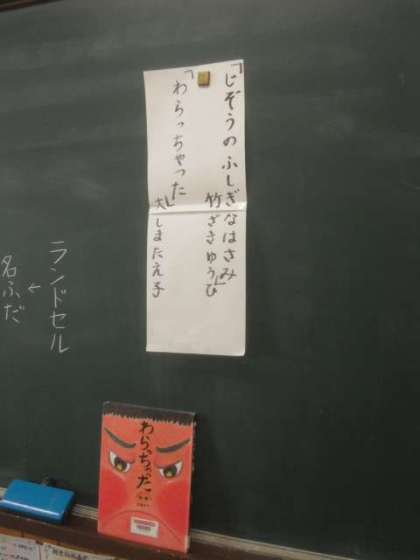 「じぞうのふしぎなはさみ」
竹ざきゆうひ
「わらっちゃった」
大しまたえ子
ランドセル
↓
名ふだ
わらっちゃった